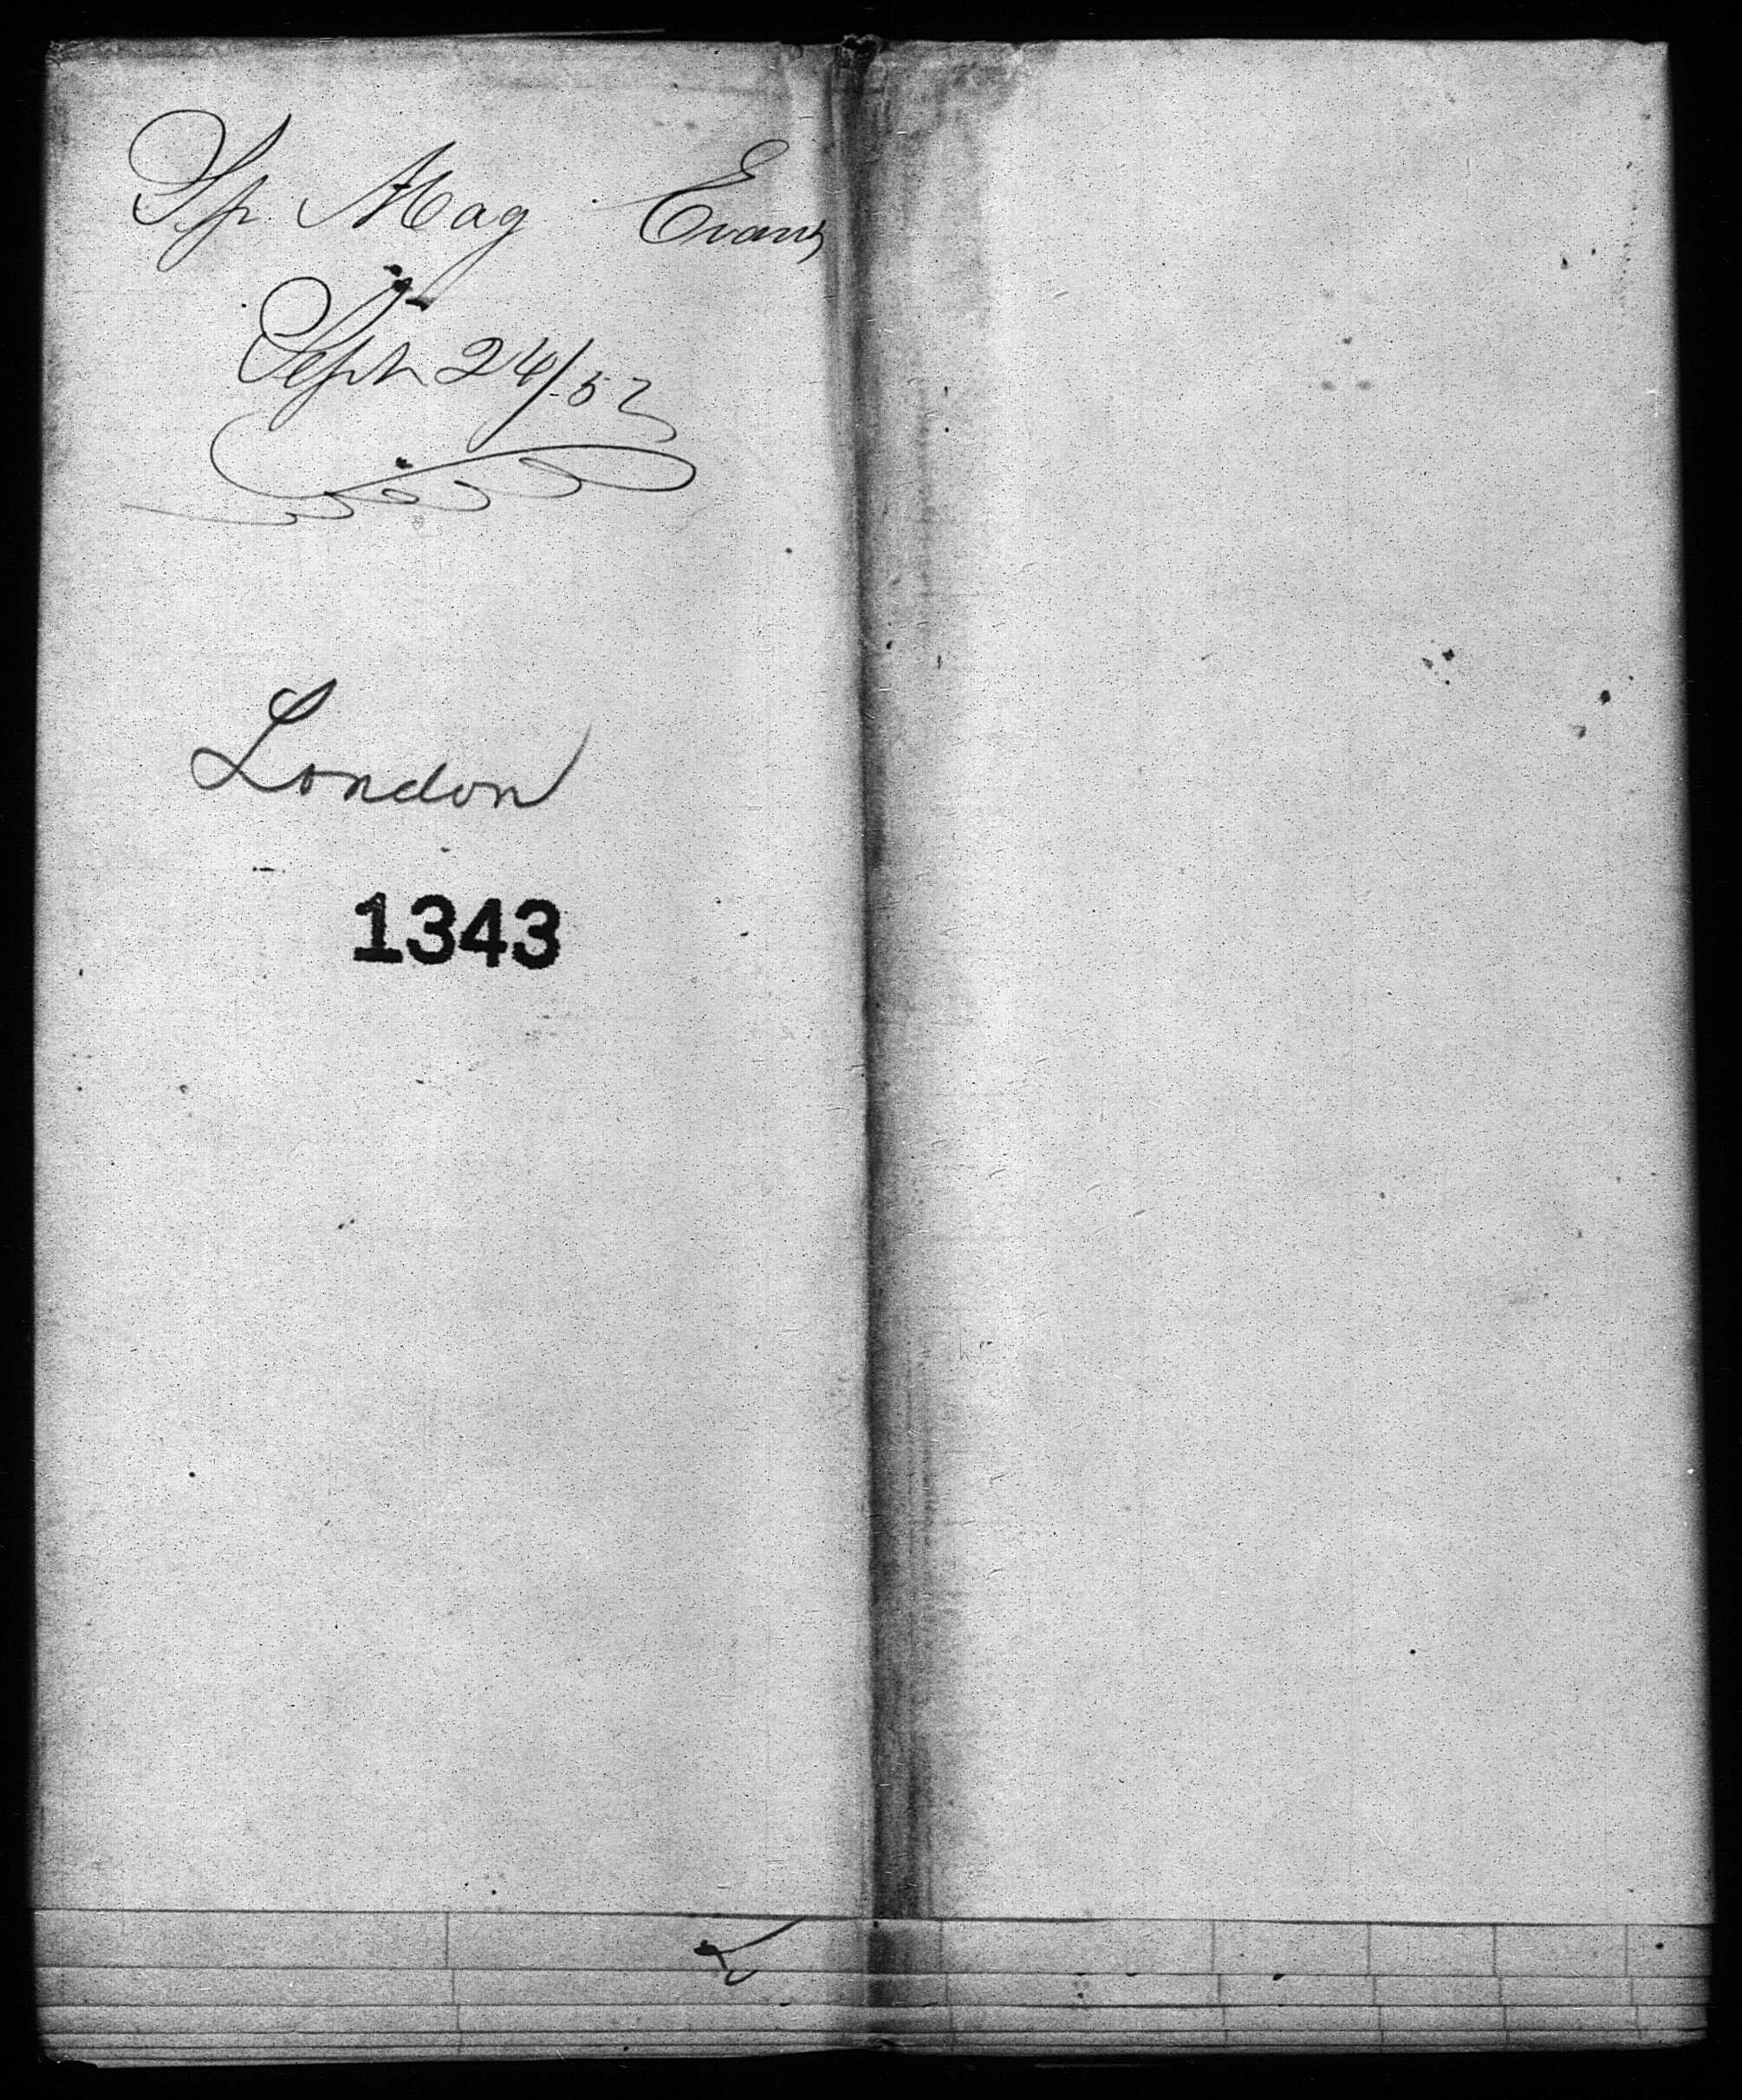 Sp. Mag Evans
Sept 24/52
London
1343